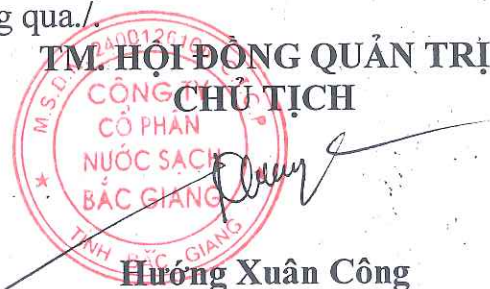 g qua./.
TM. HỘI ĐỒNG QUẢN TRỊ
CHỦ TỊCH
CÔNG TY
CỔ PHẦN
NƯỚC SẠCH
BẮC GIANG
TỈNH BẮC GIANG
Hướng Xuân Công